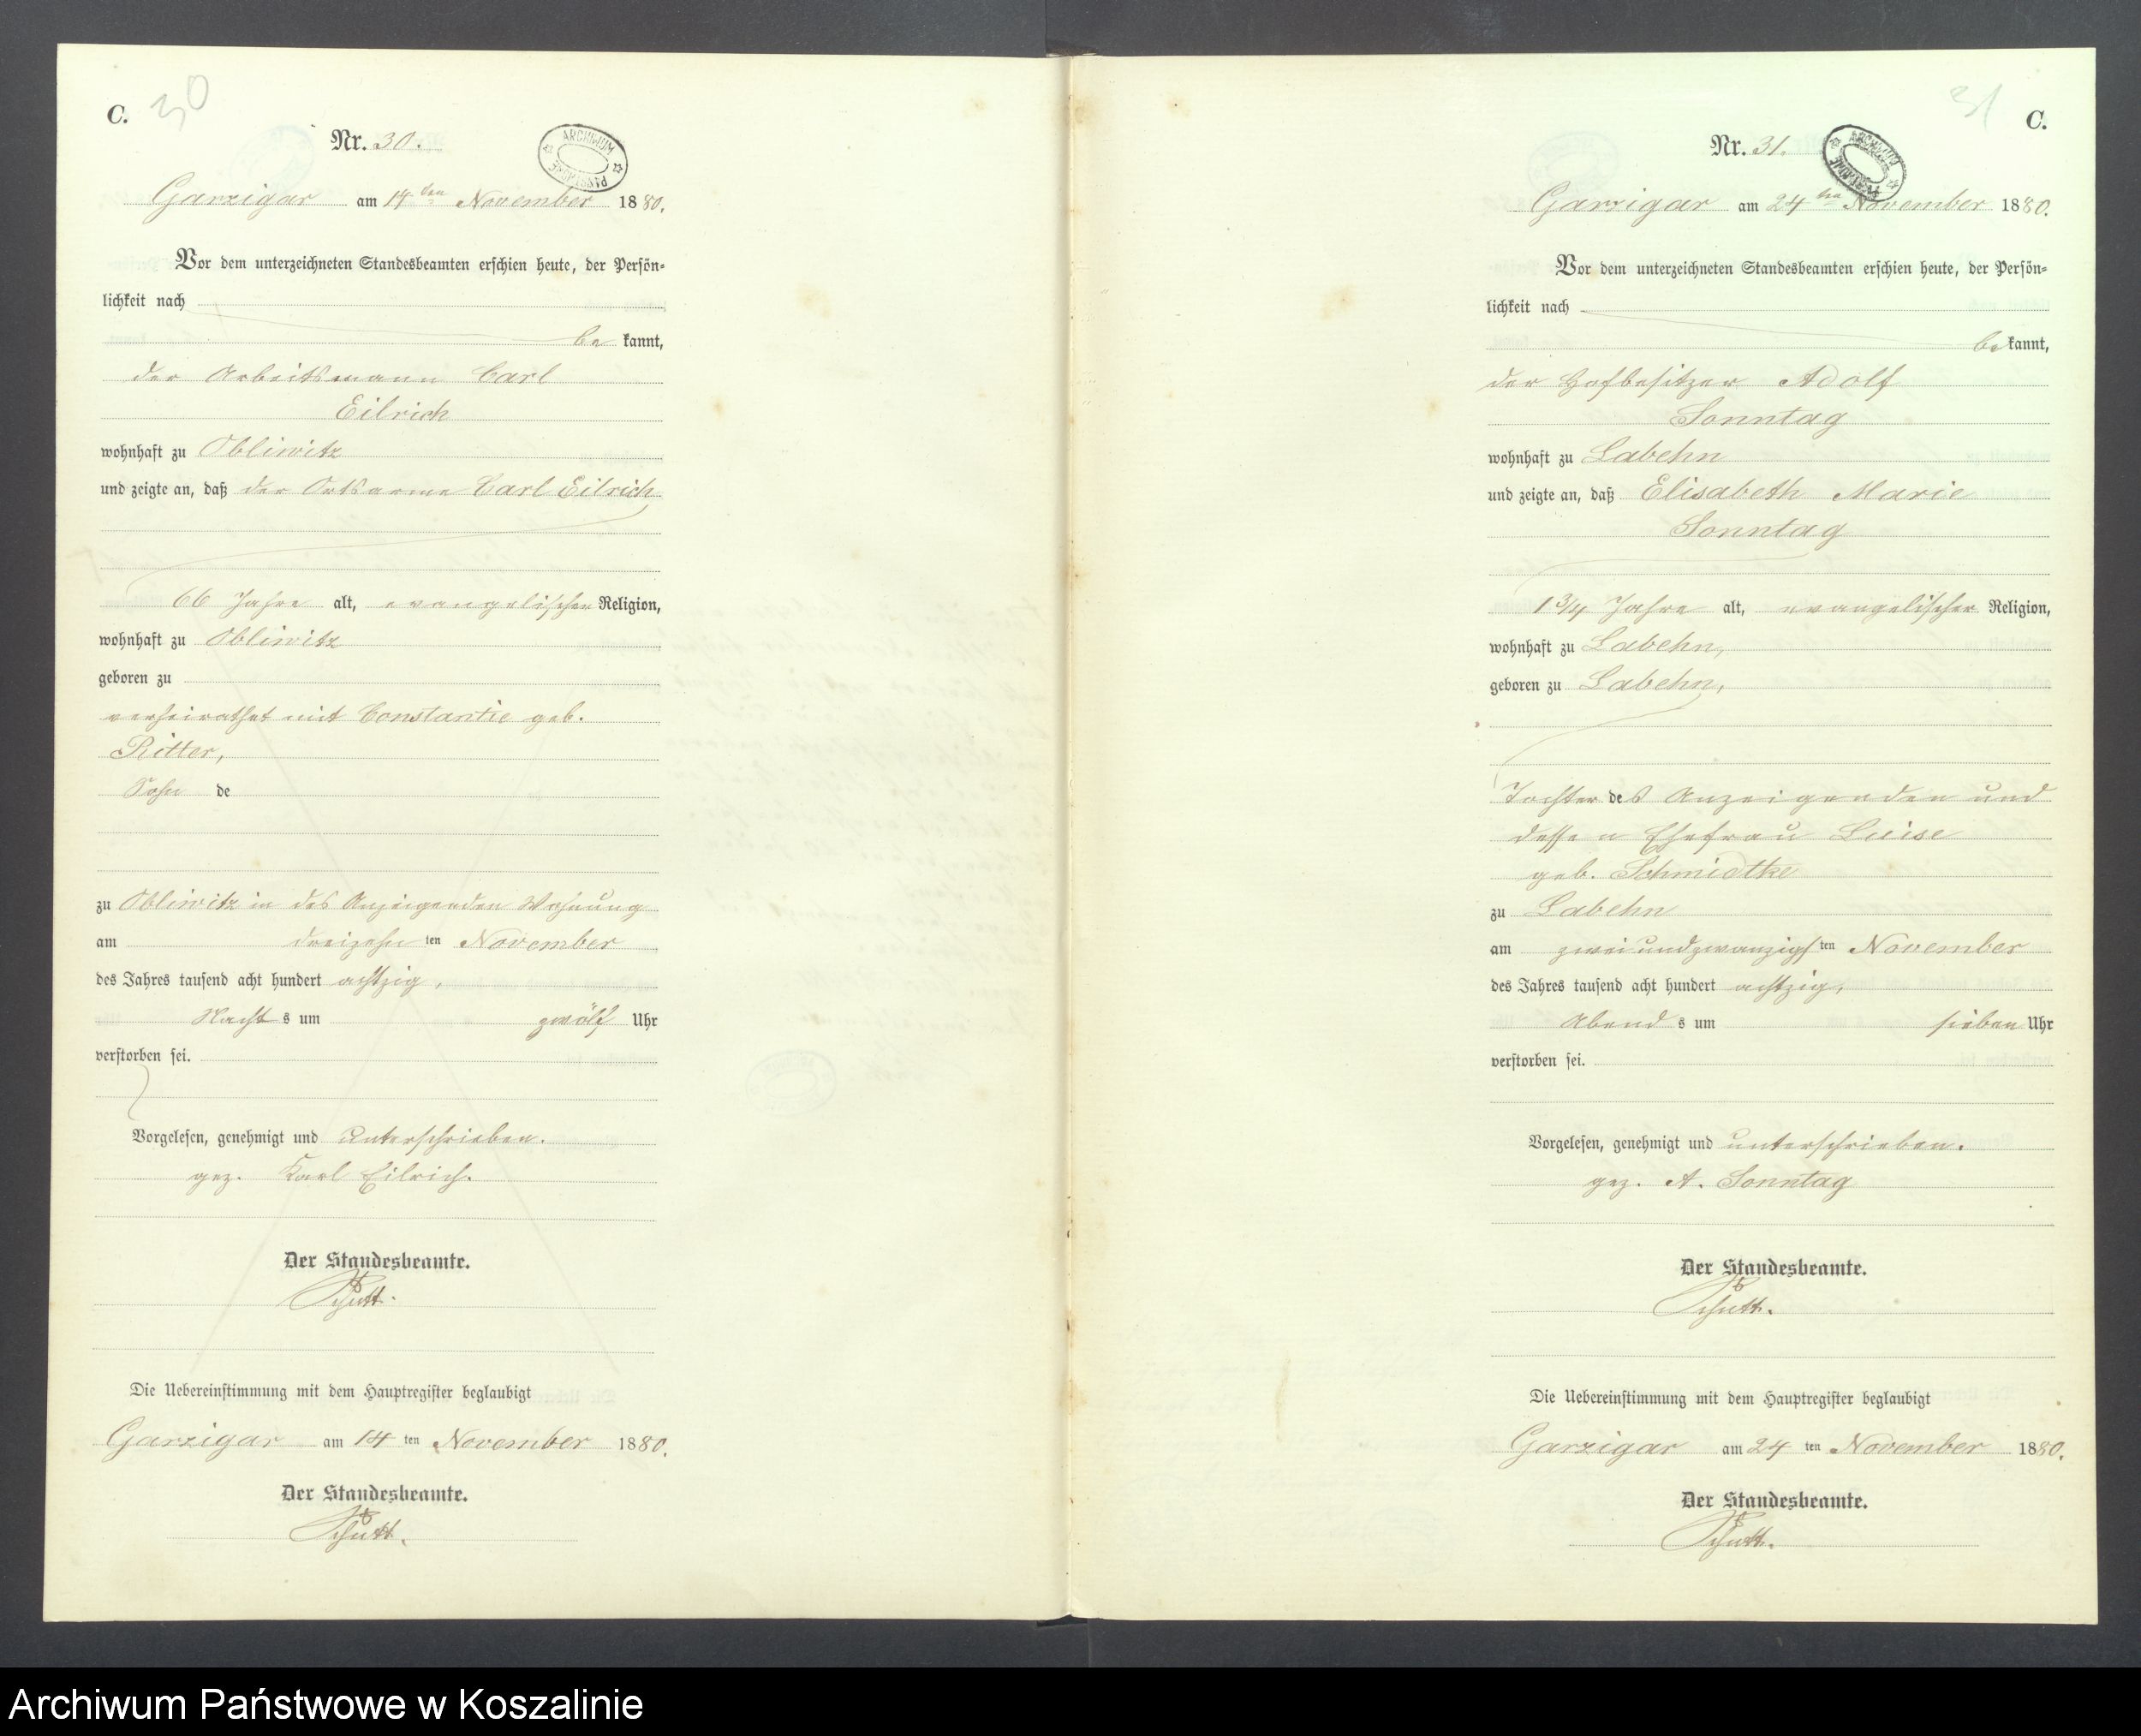 C.
30
Nr. 30.
ARCHIWUM PAŃSTWOWE
Garzigar am 14ten November 1880.
Vor dem unterzeichneten Standesbeamten erschien heute, der Persön-
lichkeit nach
be kannt,
der Arbeitsmann Carl
Eilrich
wohnhaft zu Obliwitz
und zeigte an, daß der Ortsarme Carl Eilrich
66 Jahre alt, evangelischer Religion,
wohnhaft zu Obliwitz
geboren zu
verheirathet mit Constantie geb.
Ritter,
Sohn de
zu Obliwitz in des Anzeigenden Wohnung
am dreizehn ten November
des Jahres tausend acht hundert achtzig,
Nacht s um zwölf Uhr
verstorben sei.
Vorgelesen, genehmigt und unterschrieben.
gez. Karl Eilrich.
Der Standesbeamte.
Schütt.
Die Uebereinstimmung mit dem Hauptregister beglaubigt
Garzigar am 14 ten November 1880.
Der Standesbeamte.
Schütt.
31
C.
Nr. 31.
ARCHIWUM PAŃSTWOWE
Garzigar am 24ten November 1880.
Vor dem unterzeichneten Standesbeamten erschien heute, der Persön-
lichkeit nach
be kannt,
der Hofbesitzer Adolf
Sonntag
wohnhaft zu Labehn
und zeigte an, daß Elisabeth Marie
Sonntag
1 3/4 Jahre alt, evangelischer Religion,
wohnhaft zu Labehn,
geboren zu Labehn,
Tochter des Anzeigenden und
dessen Ehefrau Luise
geb. Schmidtke
zu Labehn
am zweiundzwanzigs ten November
des Jahres tausend acht hundert achtzig,
Abend s um sieben Uhr
verstorben sei.
Vorgelesen, genehmigt und unterschrieben.
gez. A. Sonntag
Der Standesbeamte.
Schütt.
Die Uebereinstimmung mit dem Hauptregister beglaubigt
Garzigar am 24 ten November 1880.
Der Standesbeamte.
Schütt.
Archiwum Państwowe w Koszalinie